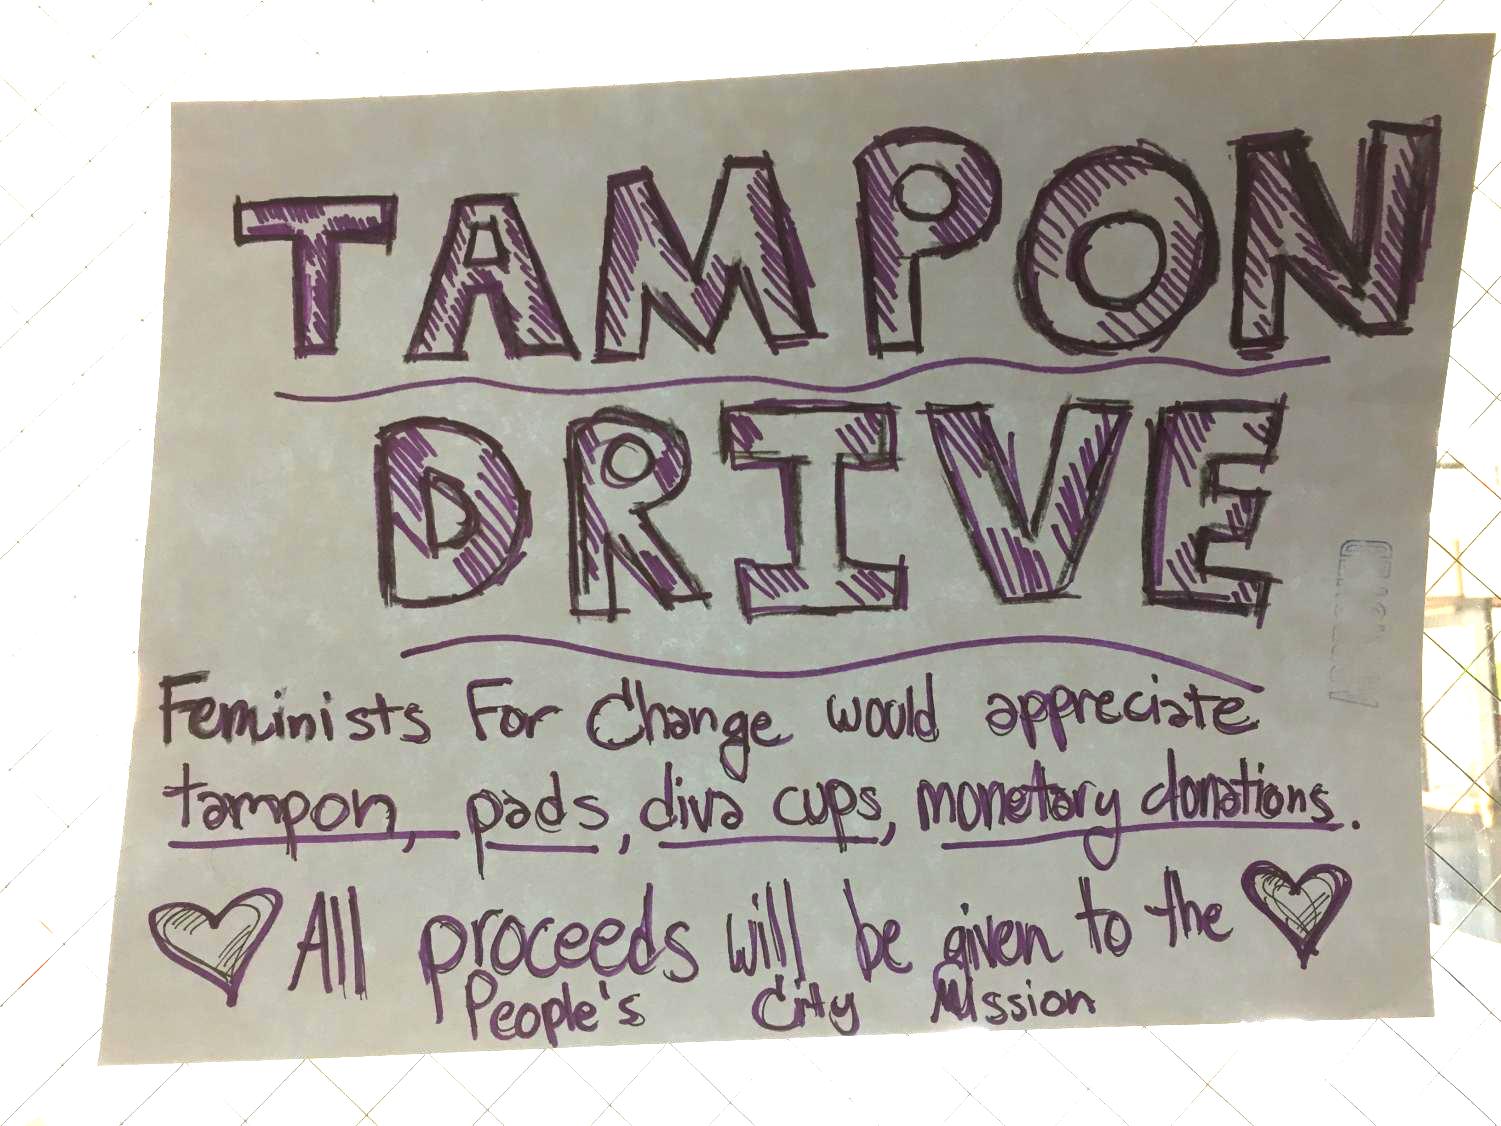 TAMPON
DRIVE
Feminists For Change would appreciate
tampon, pads, diva cups, monetary donations.
All proceeds will be given to the
People's City Mission